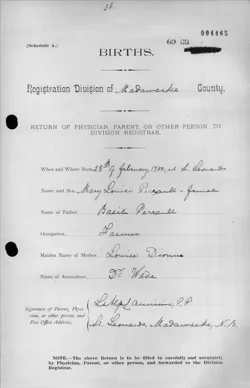 36.
004465
(Schedule A.)
BIRTHS.
Registration Division of Madawaska County.
RETURN OF PHYSICIAN, PARENT, OR OTHER PERSON, TO
DIVISION REGISTRAR.
When and Where Born 28th of february, 1900, at St Leonards
Name and Sex Mary Louise Perrault - female
Name of Father Basile Perrault
Occupation, Farmer
Maiden Name of Mother, Louise Dionne
Name of Accoucheur, Dr Wade
Signature of Parent, Physician, or other person, and Post Office Address.
P.P.
St Leonards, Madawaska, N.B.
NOTE.—The above Return is to be filled in carefully and accurately
by Physician, Parent, or other person, and forwarded to the Division
Registrar.